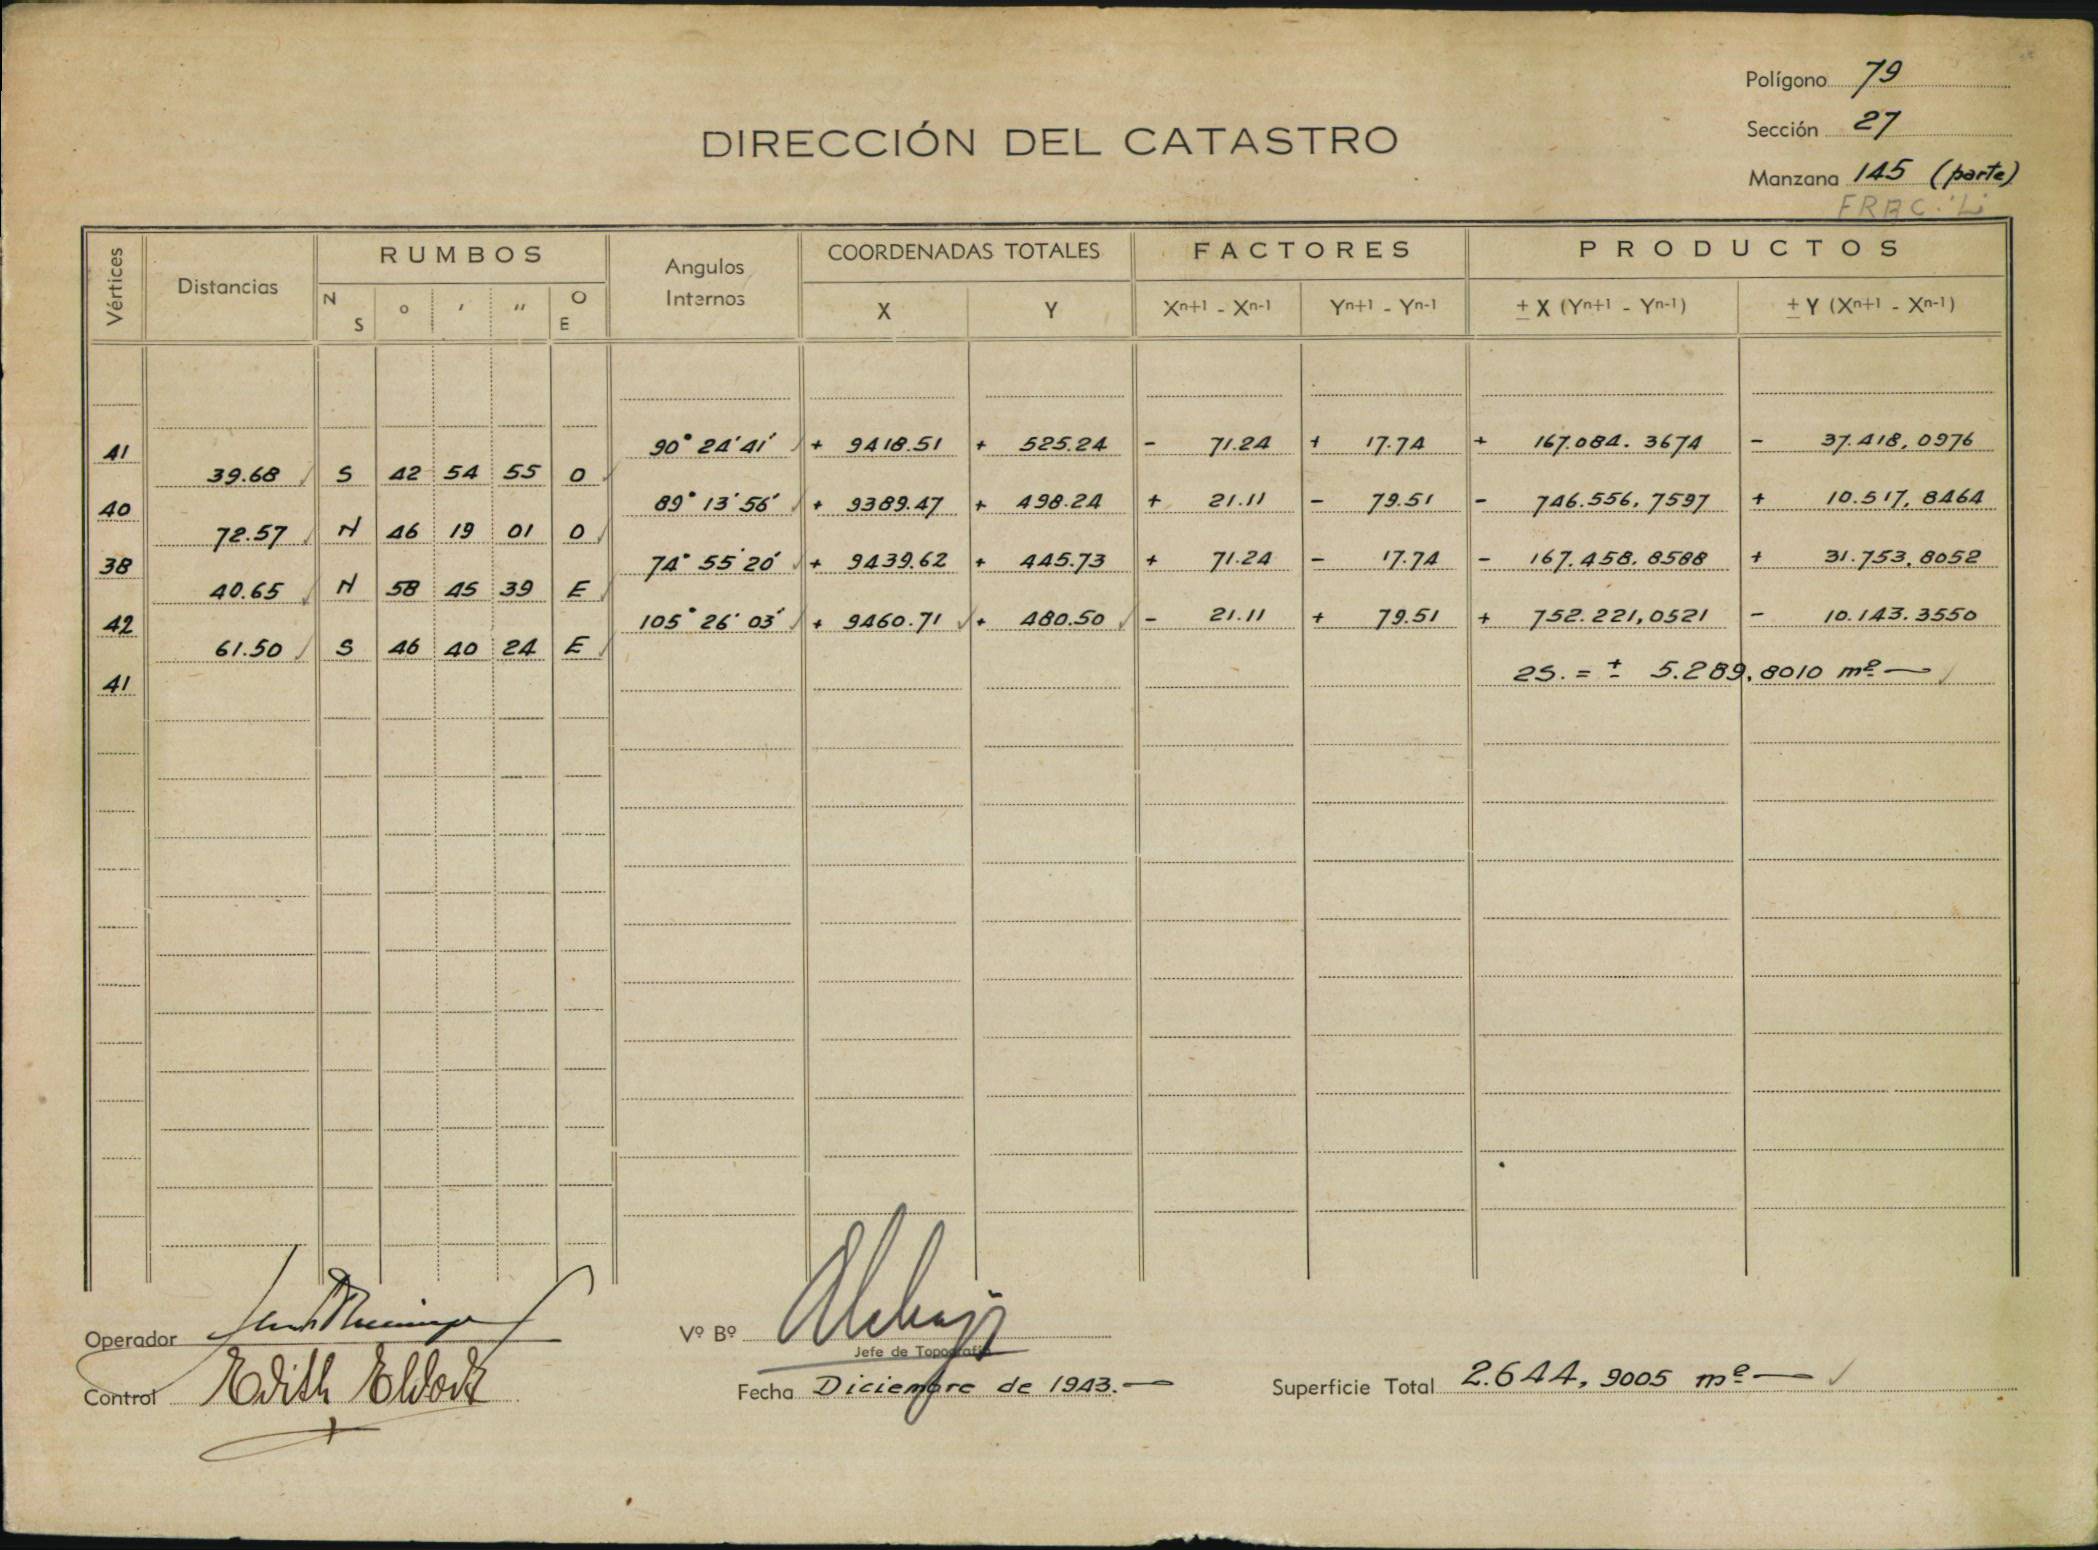 Polígono 79
DIRECCIÓN DEL CATASTRO
Sección 27
Manzana 145 (parte)
FRAC. "L"
Vértices Distancias RUMBOS Angulos Internos COORDENADAS TOTALES FACTORES PRODUCTOS
N S ° ' " O E X Y Xn+1 - Xn-1 Yn+1 - Yn-1 ± X (Yn+1 - Yn-1) ± Y (Xn+1 - Xn-1)
41 90° 24' 41' + 9418.51 + 525.24 - 71.24 + 17.74 + 167.084.3674 - 37.418,0976
39.68 S 42 54 55 O
40 89° 13' 56' + 9389.47 + 498.24 + 21.11 - 79.51 - 746.556,7597 + 10.517,8464
72.57 N 46 19 01 O
38 74° 55' 20' + 9439.62 + 445.73 + 71.24 - 17.74 - 167.458.8588 + 31.753,8052
40.65 N 58 45 39 E
42 105° 26' 03' + 9460.71 + 480.50 - 21.11 + 79.51 + 752.221,0521 - 10.143.3550
61.50 S 46 40 24 E
41 2S. = ± 5.289,8010 m²
Operador
Vº Bº
Jefe de Topografía
Control Edith
Fecha Diciembre de 1943.
Superficie Total 2.644,9005 m²